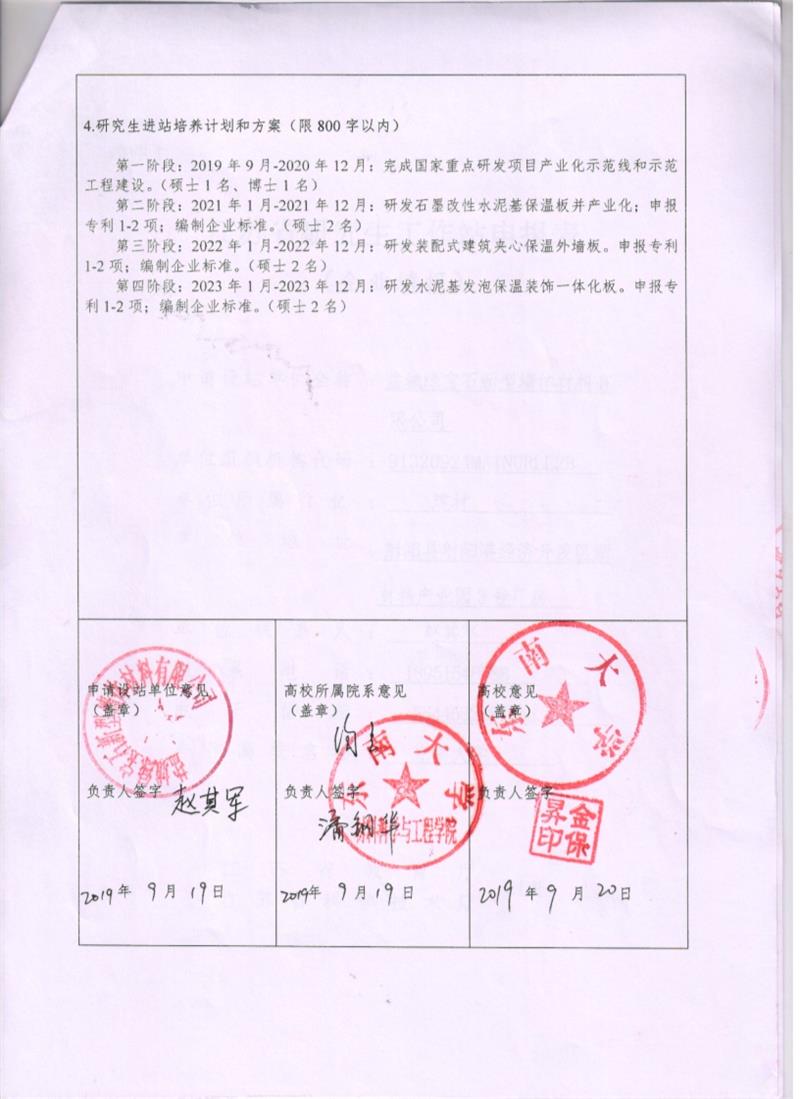 4.研究生进站培养计划和方案（限 800 字以内）
第一阶段：2019 年 9 月-2020 年 12 月：完成国家重点研发项目产业化示范线和示范
工程建设。（硕士 1 名、博士 1 名）
第二阶段：2021 年 1 月-2021 年 12 月：研发石墨改性水泥基保温板并产业化；申报
专利 1-2 项；编制企业标准。（硕士 2 名）
第三阶段：2022 年 1 月-2022 年 12 月：研发装配式建筑夹心保温外墙板。申报专利
1-2 项；编制企业标准。（硕士 2 名）
第四阶段：2023 年 1 月-2023 年 12 月：研发水泥基发泡保温装饰一体化板。申报专
利 1-2 项；编制企业标准。（硕士 2 名）
申请设站单位意见
（盖章）
材料有限公司
负责人签字
赵其军
2019 年 9 月 19 日
高校所属院系意见
（盖章）
同意
东南大学
材料科学与工程学院
负责人签字
潘钢华
2019 年 9 月 19 日
高校意见
（盖章）
东南大学
负责人签字
金保昇印
2019 年 9 月 20 日